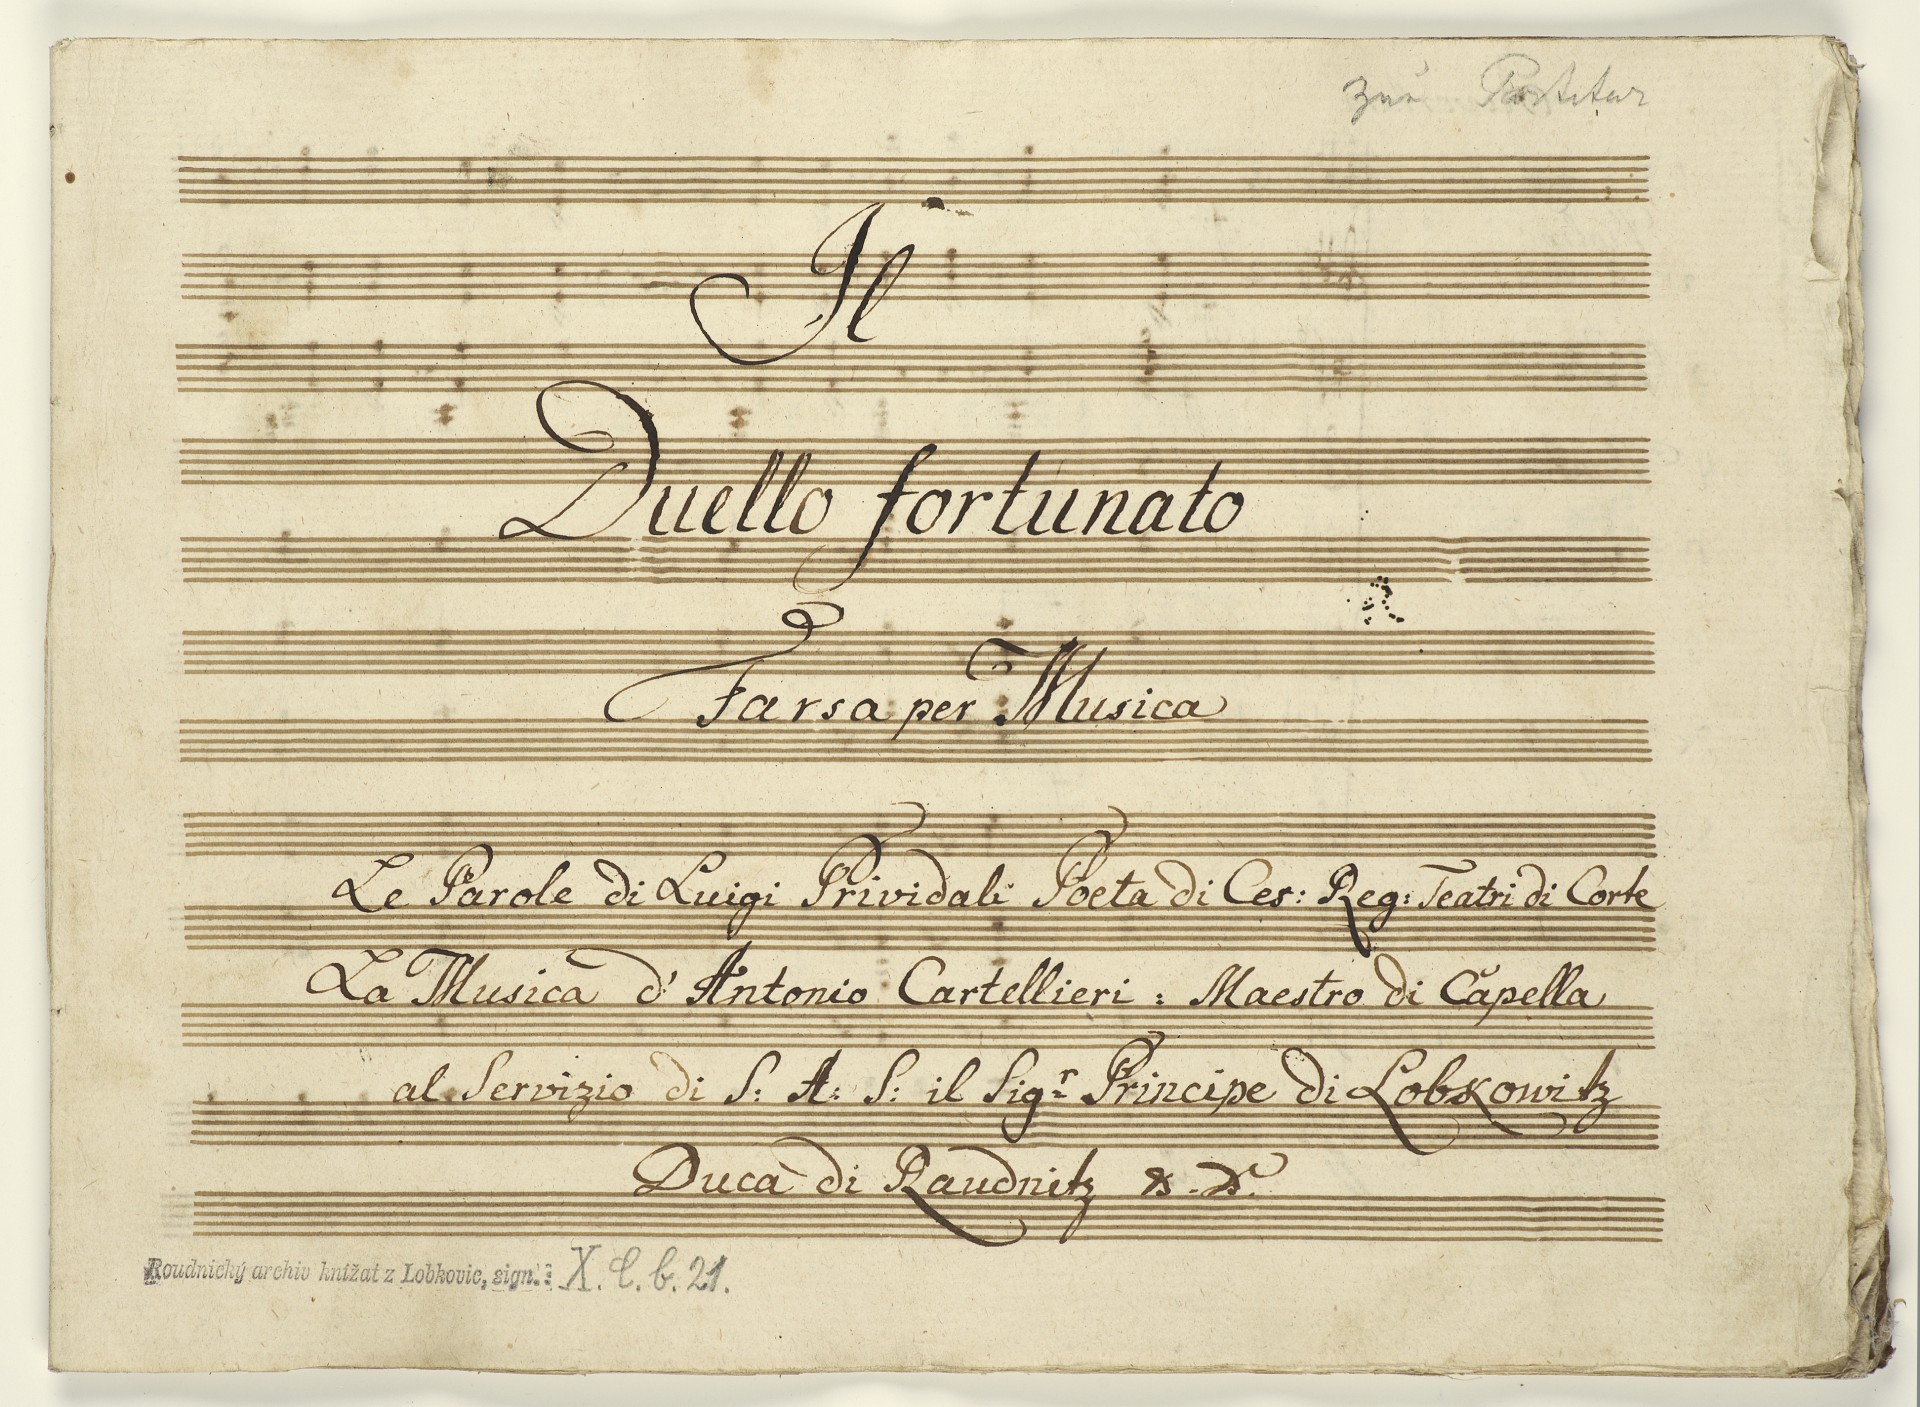 zur Partitur
Il
Duello fortunato
Farsa per Musica
Le Parole di Luigi Prividali Poeta di Ces: Reg: Teatri di Corte
La Musica d'Antonio Cartellieri: Maestro di Capella
al Servizio di S: A: S: il Sigr Principe di Lobkowitz
Duca di Raudnitz &. &.
Roudnický archiv knížat z Lobkovic, sign.: X. C. b. 21.